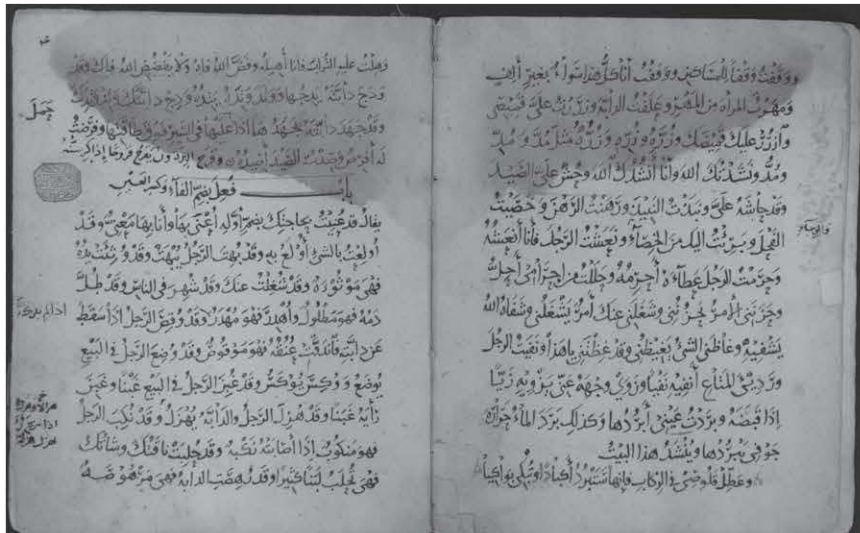 ووقفت وقفا للمساكين ووقفت أنا كل هذا سواء بغير ألف
ومهرت المرأة من المهر وعلفت الدابة وزررت علي قميصي
وازرر عليك قميصك وزره وزره وزره مثل مد ومد
ومد ونشدتك الله وأنا أنشدك الله وحش علي الصيد
وقد حاشه علي ونبذت النبيذ ورهنت الرهن وخصيت
الفحل وبرئت إليك من الخصاء ونعشت الرجل فأنا أنعشه
وحرمت الرجل عطاءه أحرمه وحللت من إحرامي أحل
وحزنني الأمر يحزنني وشغلني عنك أمر يشغلني وشفاه الله
يشفيه وغاظني الشئ يغيظني وقد غظتني يا هذا ونفيت الرجل
ورديئ المتاع أنفيه نفيا وزوى وجهه عني يزويه زيا
إذا قبضه وبردت عيني أبردها وكذلك برد الماء حرارة
جوفي يبردها وينشد هذا البيت
وعطل قلوصي في الركاب فإنها ستبرد أكبادا وتبكي بواكيا
وهلت عليه التراب فأنا أهيله وفض الله فاه ولا يفضض الله فاك وقد
ودج دابته يدجها وقد وتد وتده يتده ودج دابتك وتد وتدك
وقد جهد دابته يجهد ها إذا حمل عليها في السير فوق طاقتها وفرضت
له أفرض وصدت الصيد أصيده
باب فعل بضم الفاء وكسر العين
يقال قد عنيت بحاجتك بضم أوله أعنى بها وأنا بها معني وقد
أولعت بالشئ أولع به وقد بهت الرجل يبهت وقد وثئت يده
فهي موثوءة وقد شغلت عنك وقد شهر في الناس وقد طل
دمه فهو مطلول وأهدر فهو مهدر وقد وقص الرجل إذا سقط
عن دابته فاندقت عنقه فهو موقوص وقد وضع الرجل في البيع
يوضع ووكس يوكس وقد غبن الرجل في البيع غبنا وغبن
رأيه غبنا وقد هزل الرجل والدابة يهزل وقد نكب الرجل
فهو منكوب إذا أصابته نكبة وقد حلبت ناقتك وشاتك
فهي تحلب لبنا كثيرا وقد رهصت الدابة فهي مرهوصة